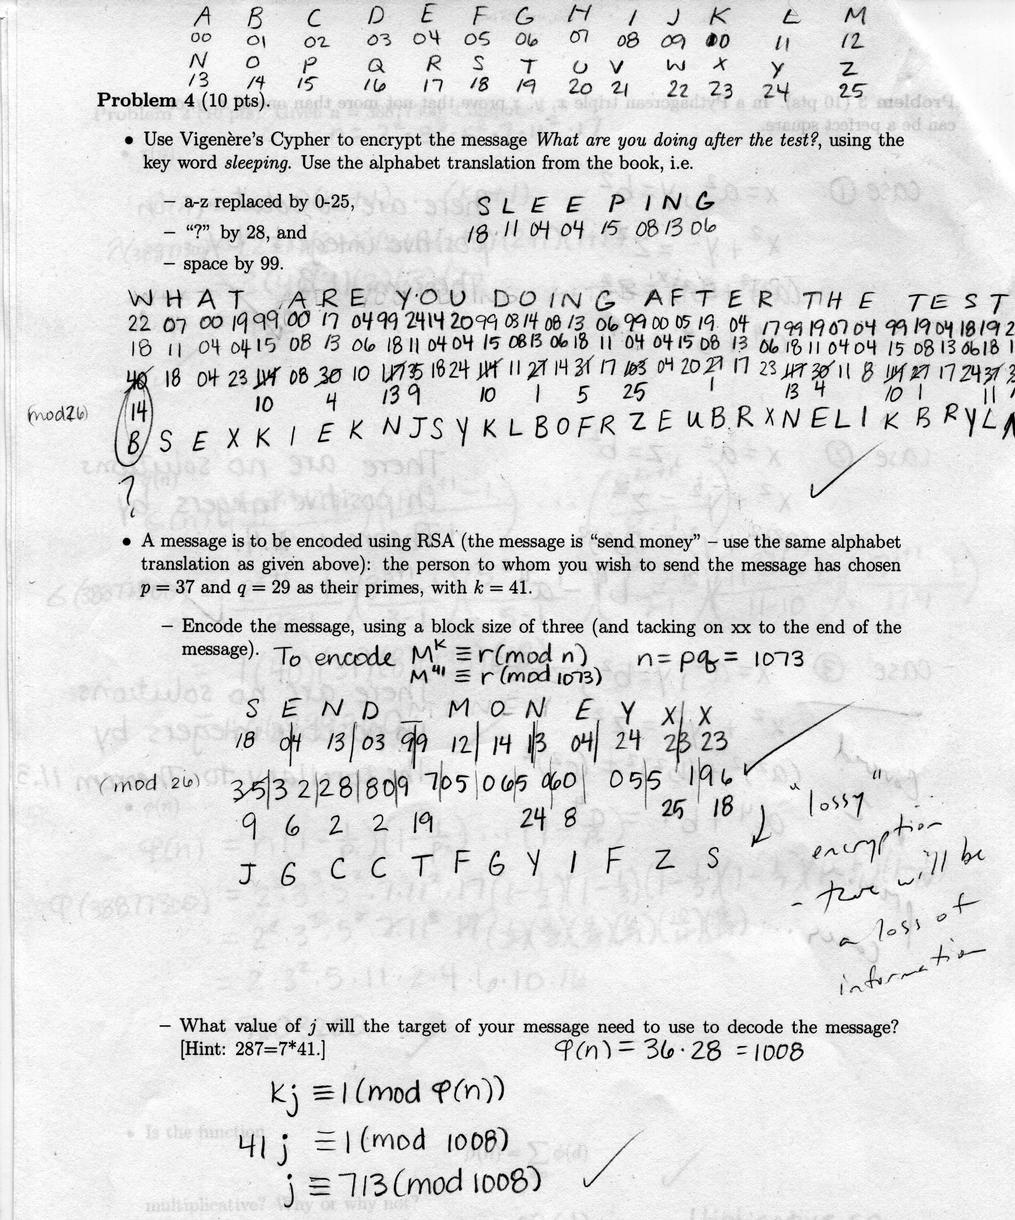 A B C D E F G H I J K L M
00 01 02 03 04 05 06 07 08 09 10 11 12
N O P Q R S T U V W X Y Z
13 14 15 16 17 18 19 20 21 22 23 24 25
Problem 4 (10 pts).
• Use Vigenère's Cypher to encrypt the message What are you doing after the test?, using the
key word sleeping. Use the alphabet translation from the book, i.e.
– a-z replaced by 0-25,
– "?" by 28, and
– space by 99.
S L E E P I N G
18 11 04 04 15 08 13 06
WHAT ARE YOU DOING AFTER THE TEST
22 07 00 19 99 00 17 04 99 24 14 20 99 03 14 08 13 06 99 00 05 19 04 17 99 19 07 04 99 19 04 18 19 2
18 11 04 04 15 08 13 06 18 11 04 04 15 08 13 06 18 11 04 04 15 08 13 06 18 11 04 04 15 08 13 06 18 1
40 18 04 23 114 08 30 10 117 35 18 24 114 11 27 14 31 17 103 04 20 27 17 23 117 30 11 8 114 27 17 24 37 3
(mod 26) 14 10 4 13 9 10 1 5 25 1 13 4 10 1 11
B S E X K I E K N J S Y K L B O F R Z E U B R X N E L I K B R Y L
?
• A message is to be encoded using RSA (the message is "send money" – use the same alphabet
translation as given above): the person to whom you wish to send the message has chosen
p = 37 and q = 29 as their primes, with k = 41.
– Encode the message, using a block size of three (and tacking on xx to the end of the
message). To encode M^K ≡ r (mod n) n = pq = 1073
M^41 ≡ r (mod 1073)
S E N D _ M O N E Y X X
18 04 13 03 99 12 14 13 04 24 23 23
(mod 26) 35|3 2|28|80|9 7|05|065 060| 05|5 196
9 6 2 2 19 24 8 25 18
J G C C T F G Y I F Z S
"lossy"
encryption
- there will be
a loss of
information
– What value of j will the target of your message need to use to decode the message?
[Hint: 287=7*41.] φ(n) = 36·28 = 1008
Kj ≡ 1 (mod φ(n))
41 j ≡ 1 (mod 1008)
j ≡ 713 (mod 1008)